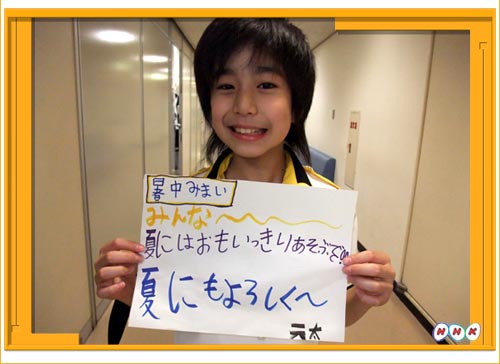 暑中みまい
みんな〜〜〜〜
夏にはおもいっきりあそぶで!!
夏にもよろしく〜
元太
NHK